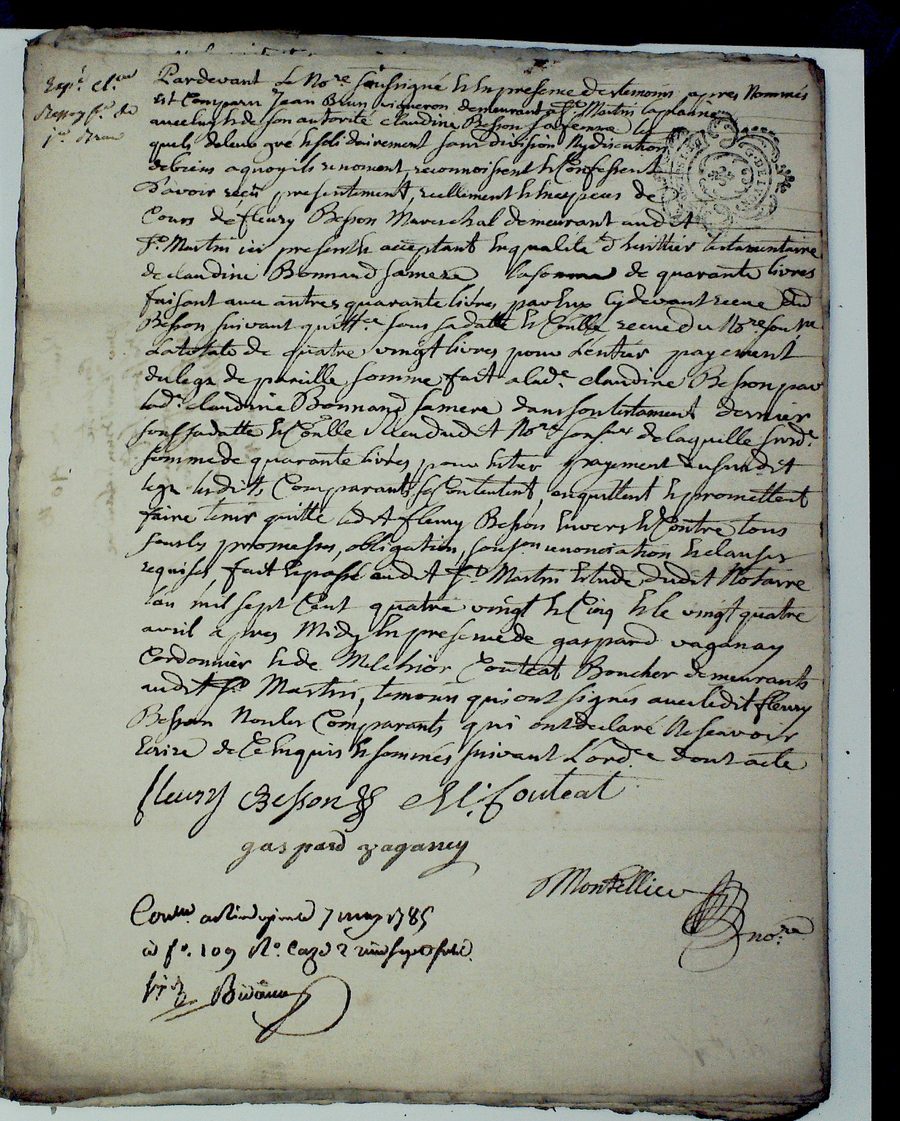 Pardevant Le No.re Soussigné & En presence des temoins apres Nommés
Est Comparu Jean Brun vigneron demeurant a St Martin laplaine
avec luy & de son autorité claudine Besson sa femme les
quels de leur gré & solidairement sans division Ny discution
de biens a quoy ils renoncent, reconnoissent & Confessent
D'avoir reçu presentement, reellement & En especes de
Cours de fleury Besson Mareschal demeurant audit
St. Martin ici present & acceptant En qualité d'heritier testamentaire
de claudine Bonnand sa mere la somme de quarante livres
faisant avec autres quarante livres par Eux Cy devant reçue dud
Besson suivant quitt.ce sous sa datte & Conlle recue du No.re Sous.ne
la totale de quatre vingt livres pour L'entier payement
du legs de pareille somme fait a lad.e claudine Besson par
lad.e claudine Bonnand sa mere dans son testament dernier
sous sa datte & Conlle dudit No.re de laquelle susd.e
somme de quarante livres pour Entier payement du susdit
legs lesdits Comparants se Contentent, en quittent & promettent
faire tenir quitte ledit fleury Besson Envers & Contre tous
sous les promesses, obligation, renonciation & clauses
requises, fait & passé audit St. Martin Etude dudit Notaire
lan mil sept Cent quatre vingt & Cinq & le vingt quatre
avril apres Midy En presence de gaspard vaganay
Cordonnier & de Melchior Couteat Boucher demeurants
audit St. Martin, temoins qui ont signés avec ledit fleury
Besson Non les Comparants qui ont declaré Ne scavoir
Ecrire de Ce Enquis & sommés suivant L'ord.e dont acte
fleury Besson M. Couteat
gaspard vaganey
Montellier
no.re
Con.lle a 7 may 1785
a f.o 109 R.o Caze 2